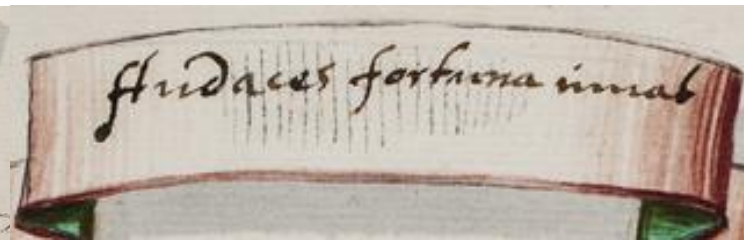 Audaces fortuna iuuat